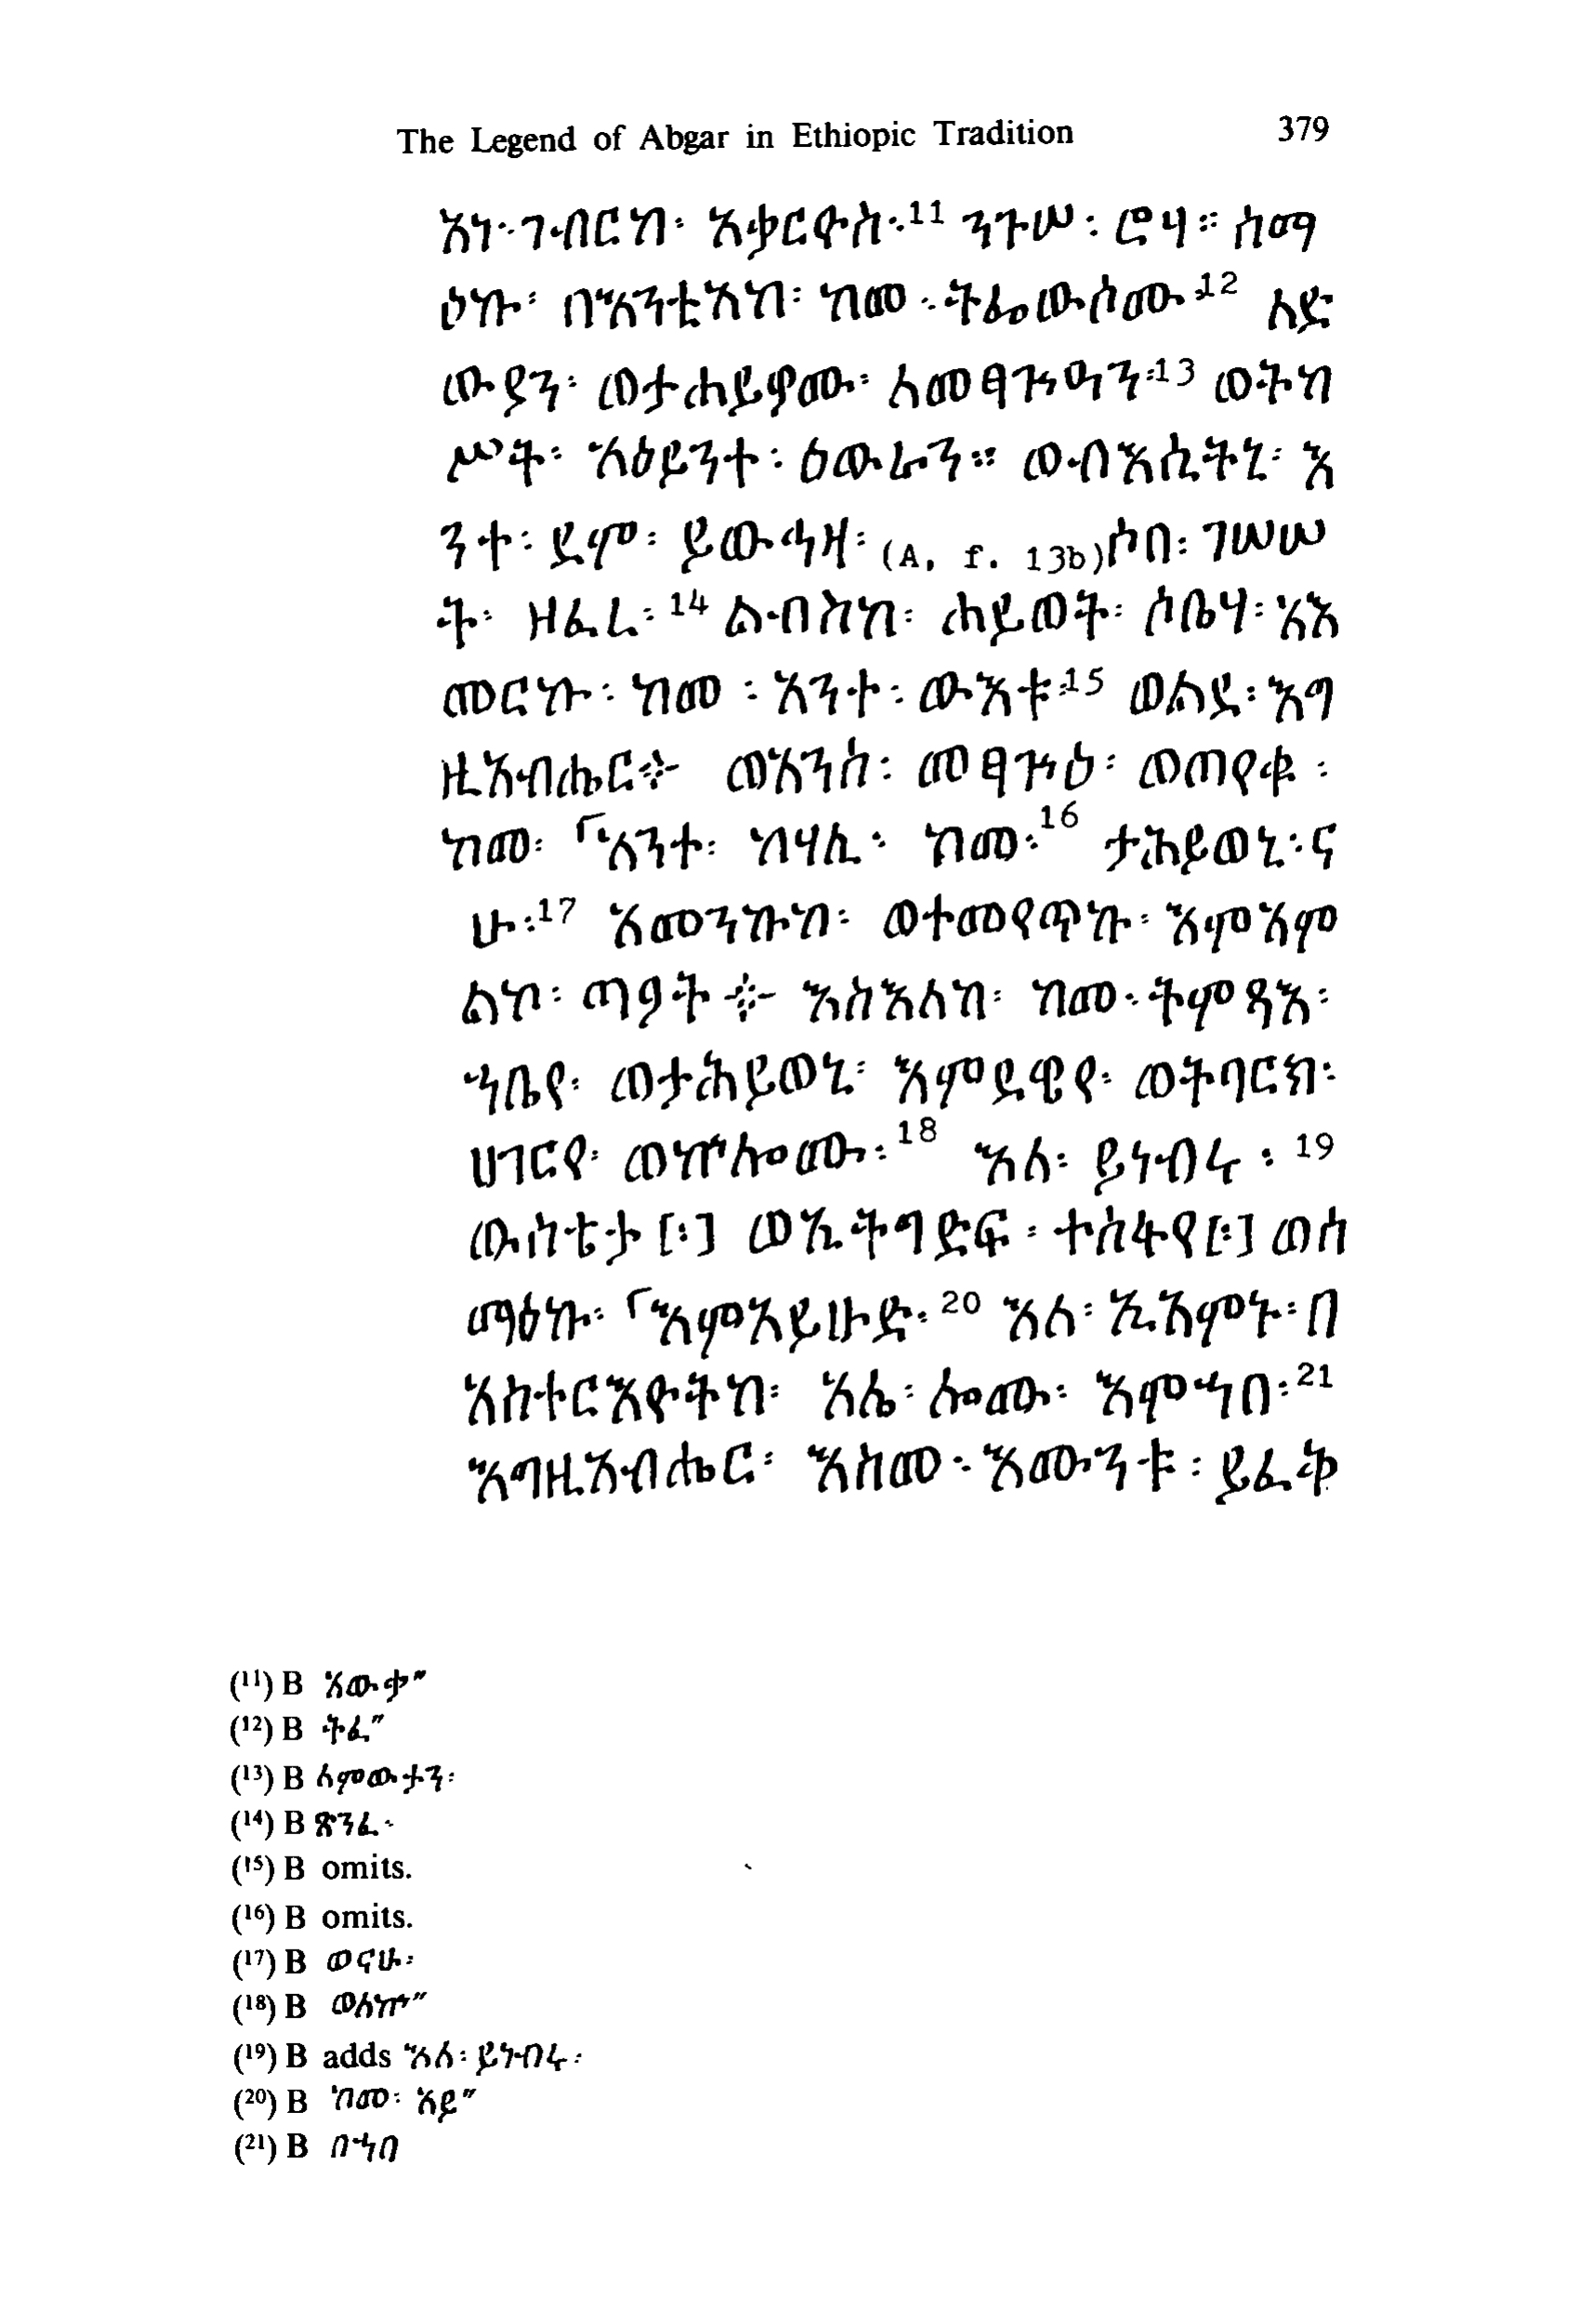 The Legend of Abgar in Ethiopic Tradition 379
አነ፡ ገብርከ፡ አቃርዮስ፡11 ንጉሠ፡ ሮሃ። ሰማ
ዕኩ፡ በእንቲአከ፡ ከመ፡ ትፌውሶሙ፡12 ለድ
ውያን፡ ወታሐይዎሙ፡ ለመፃጕዓን፡13 ወትከ
ሥት፡ አዕይንተ፡ ዕውራን። ወብእሲትኒ፡ እ
ንተ፡ ደም፡ ይውሓዛ፡ (A, f. 13b) ሶበ፡ ገሠሠ
ት፡ ዘፈረ፡14 ልብስከ፡ ሐይወት፡ ሶቤሃ፡ አእ
መርኩ፡ ከመ፡ አንተ፡ ውእቱ፡15 ወልደ፡ እግ
ዚአብሔር፨ ወአንሰ፡ መፃጕዕ፡ ወጠየቁ፡
ከመ፡ ⌜አንተ፡ ከሃሊ፡ ከመ፡16 ታሕይወኒ፡ ና
ሁ፡17 አመንኩከ፡ ወተመየጥኩ፡ እምአም
ልኮ፡ ጣዖት፨ እስእለከ፡ ከመ፡ ትምጻእ፡
ኀቤየ፡ ወታሕይወኒ፡ እምደዌየ፡ ወትባርክ፡
ሀገርየ፡ ወኵሎሙ፡18 እለ፡ ይነብሩ፡19
ውስቴታ[፡] ወኢትግድፍ፡ ተስፋየ[፡] ወሰ
ማዕኩ፡ ⌜እምአይሁድ፡20 እለ፡ ኢአምኑ፡ በ
አስተርእዮትከ፡ አሌ፡ ሎሙ፡ እምኀበ፡21
እግዚአብሔር፡ እስመ፡ እሙንቱ፡ ይፈቅ
(11) B አውቃ″
(12) B ትፈ″
(13) B ለምውታን፡
(14) B ጽንፈ፡
(15) B omits.
(16) B omits.
(17) B ወናሁ፡
(18) B ወለኵ″
(19) B adds እለ፡ ይነብሩ፡
(20) B ከመ፡ አይ″
(21) B በኀበ